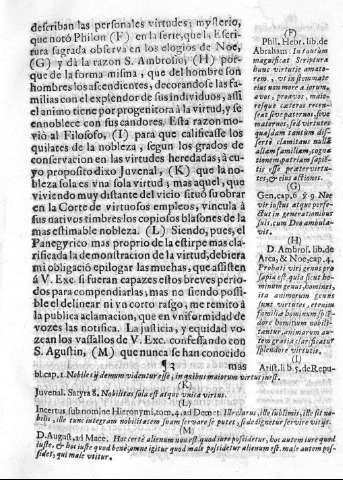 describan las personales virtudes; mysterio,
que notó Philon (F) en la serie, que la Escri
tura sagrada observa en los elogios de Noe,
(G) y dà la razon S. Ambrosio, (H) por-
que de la forma misma, que del hombre son
hombres los ascendientes, decorandose las fa-
milias con el explendor de sus individuos, assi
el animo tiene por progenitorá la virtud, y se
ennoblece con sus candores. Esta razon mo-
viò al Filosofo, (I) para que calificasse los
quilates de la nobleza, segun los grados de
conservacion en las virtudes heredadas; à cu-
yo proposito dixo Juvenal, (K) que la no-
bleza sola es vna sola virtud; mas aquel, que
viviendo muy distante del vicio situò su obrar
en la Corte de virtuosos empleos, vincula à
sus nativos timbres los copiosos blasones de la
mas estimable nobleza. (L) Siendo, pues, el
Panegyrico mas proprio de la estirpe mas cla-
rificada la demonstracion de la virtud, debiera
mi obligaciò epilogar las muchas, que assisten
à V. Exc. si fueran capazes estos breves perio-
dos para compendiarlas, mas no siendo possi-
ble el delinear ni vn corto rasgo, me remito à
la publica aclamacion, que en vniformidad de
vozes las notifica. La justicia, y equidad vo-
zean los vassallos de V. Exc. confessando con
S. Agustin, (M) que nunca se han conocido
¶3 mas
(F)
Phil. Hebr. lib. de
Abraham: In totum
magnificat Scriptura
hunc virtutis amato-
rem, vt in summate
eius nomen a
avus, proavus, maio-
resque cæteros recen-
seat sive paternos, sive
maternos, sed virtutes
quasdam tantum dif-
fertè clamitans nullã
aliam familiam, cogna
tionem patriam sapië
tis esse præter virtu-
tes, & eius actiones.
(G)
Gen. cap. 6. v. 9. Noe
vir iustus atque perfe-
ctus in generationibus
suis, cum Deo ambula-
vit.
(H)
D. Ambros. lib. de
Arca, & Noe, cap. 4.
Probati viri genus pro
sapia est, quia sicut ho-
minum genus, homines,
ita animorum genus
sunt virtutes, etenim
familiæ hominum splẽ-
dore bonitum nobili-
tantur, animorum au-
tem gratia clarificatur
splendore virtutis.
(I)
Arist. lib. 5. de Repu-
bl. cap. 1. Nobiles ij demum videntur esse, in quibus maiorum virtus inest.
(K)
Juvenal. Satyra 8. Nobilitas sola est atque vnica virtus.
(L)
Incertus sub nomine Hieronymi, tom. 4. ad Demet. Ille clarus, ille sublimis, ille sit no-
bilis, ille tunc integram nobilitatem suam servare se putet, si dedignetur servire vitijs.
(M)
D. August. ad Mace. Hoc certè alienum non est quod iure possidetur, hoc autem iure quod
iuste, & hoc iuste quod benè, omne igitur quod male possidetur alienum est, male autem pos-
sidet, qui male vtitur.